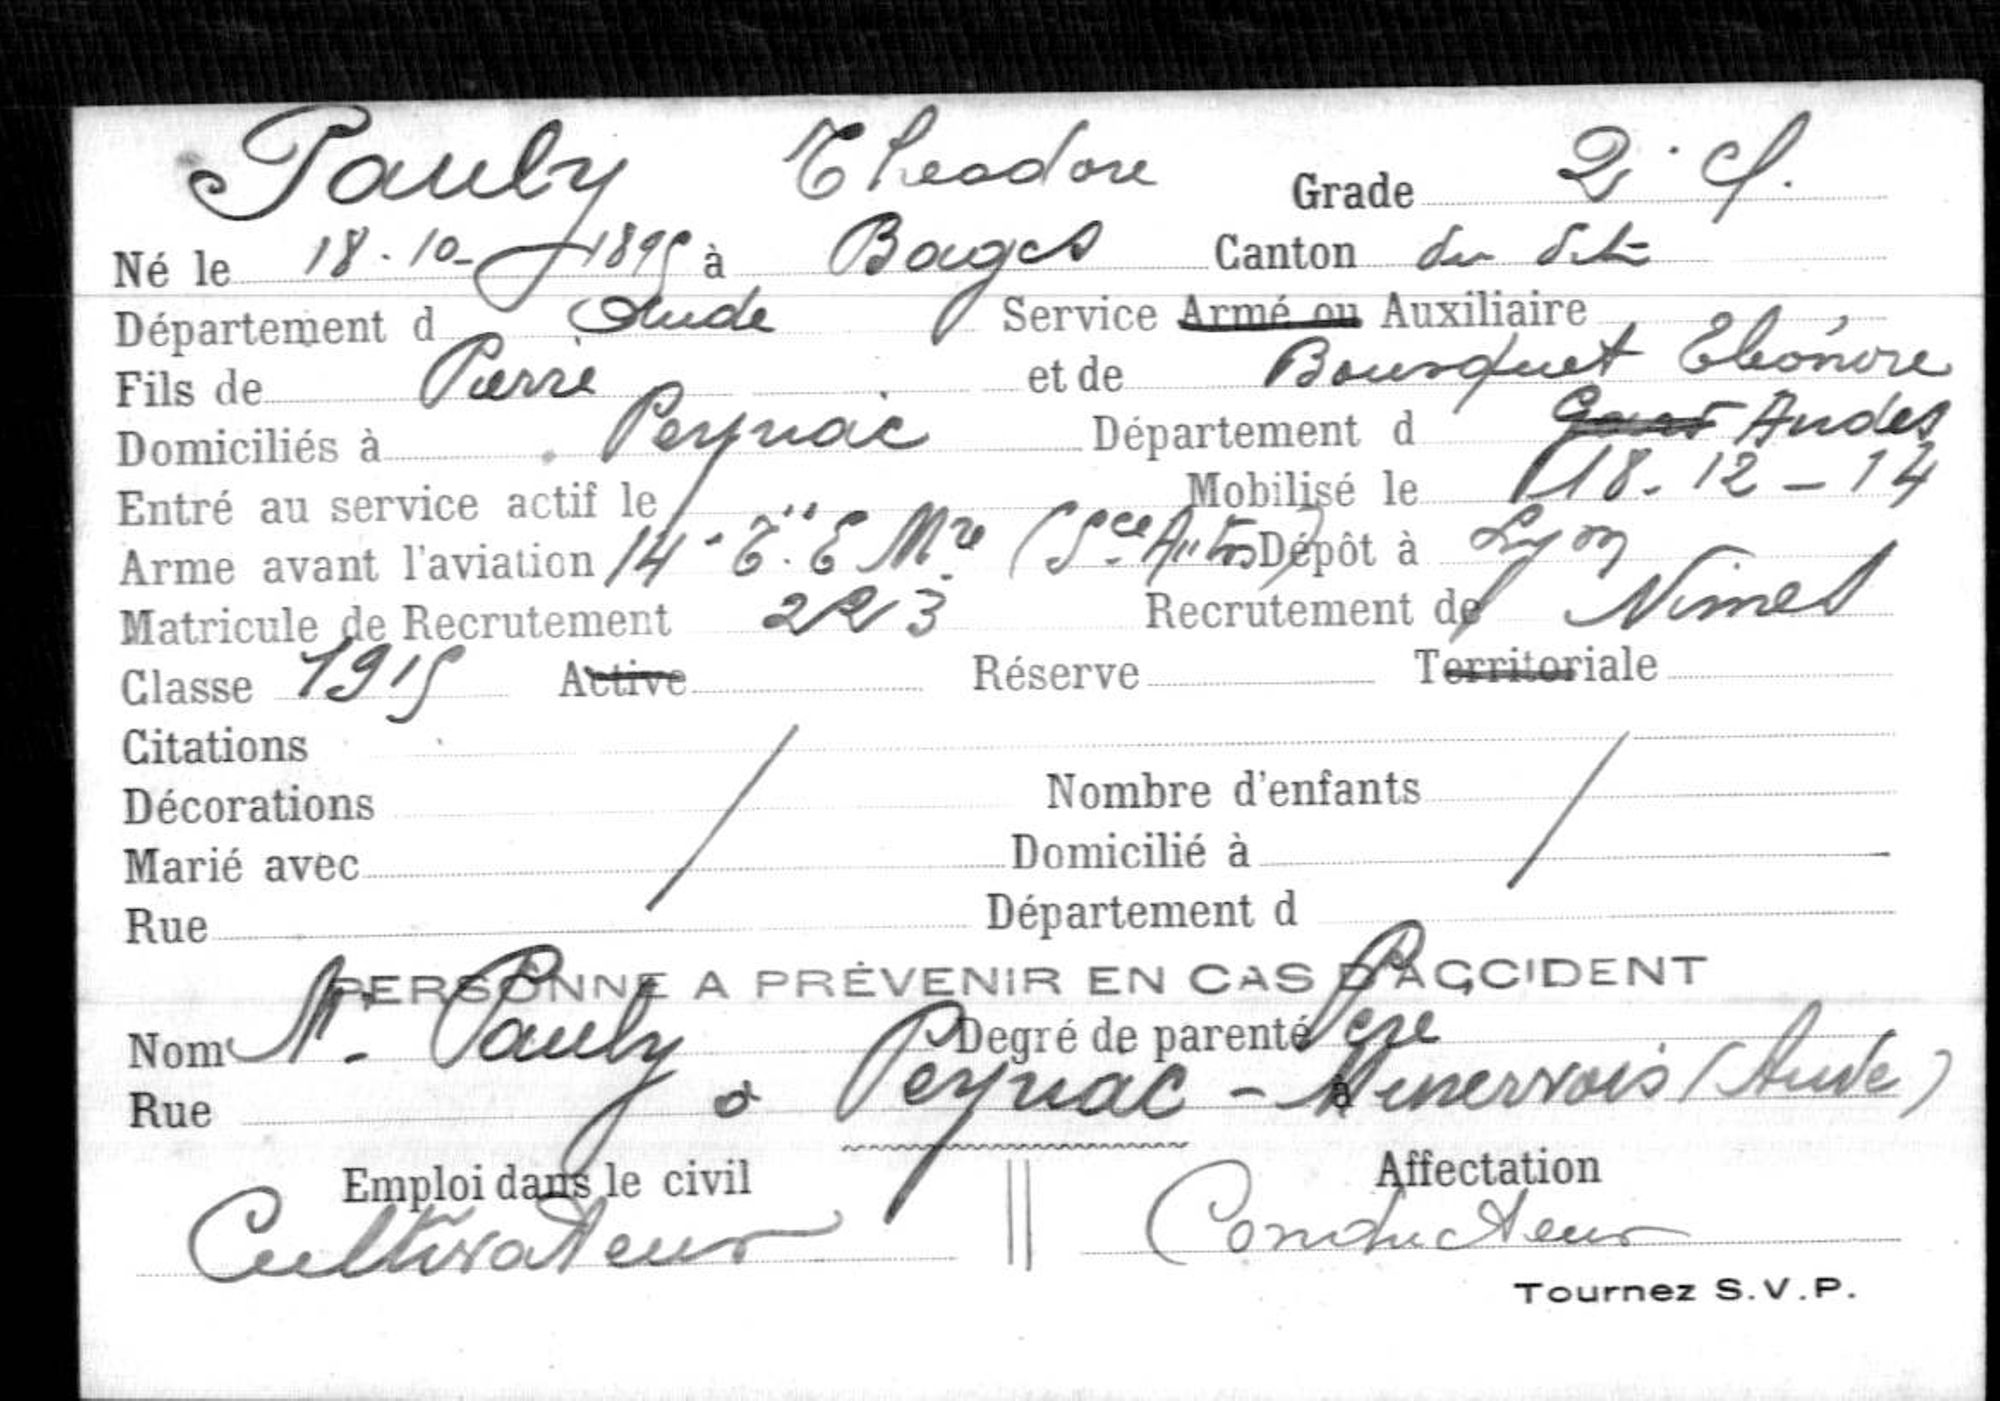 Pauly Théodore Grade 2e cl.
Né le 18-10-1895 à Bages Canton du dit
Département d Aude Service Armé ou Auxiliaire
Fils de Pierre et de Bousquet Eléonore
Domiciliés à Peyriac Département d Gard Audes
Entré au service actif le Mobilisé le 18-12-14
Arme avant l'aviation 14e T. E Mre (Sce Autos) Dépôt à Lyon
Matricule de Recrutement 2213 Recrutement de Nimes
Classe 1915 Active Réserve Territoriale
Citations
Décorations Nombre d'enfants
Marié avec Domicilié à
Rue Département d
PERSONNE A PRÉVENIR EN CAS D'ACCIDENT
Nom Mr. Pauly Degré de parenté Père
Rue à Peyriac - Minervois (Aude)
Emploi dans le civil Affectation
Cultivateur Conducteur
Tournez S.V.P.